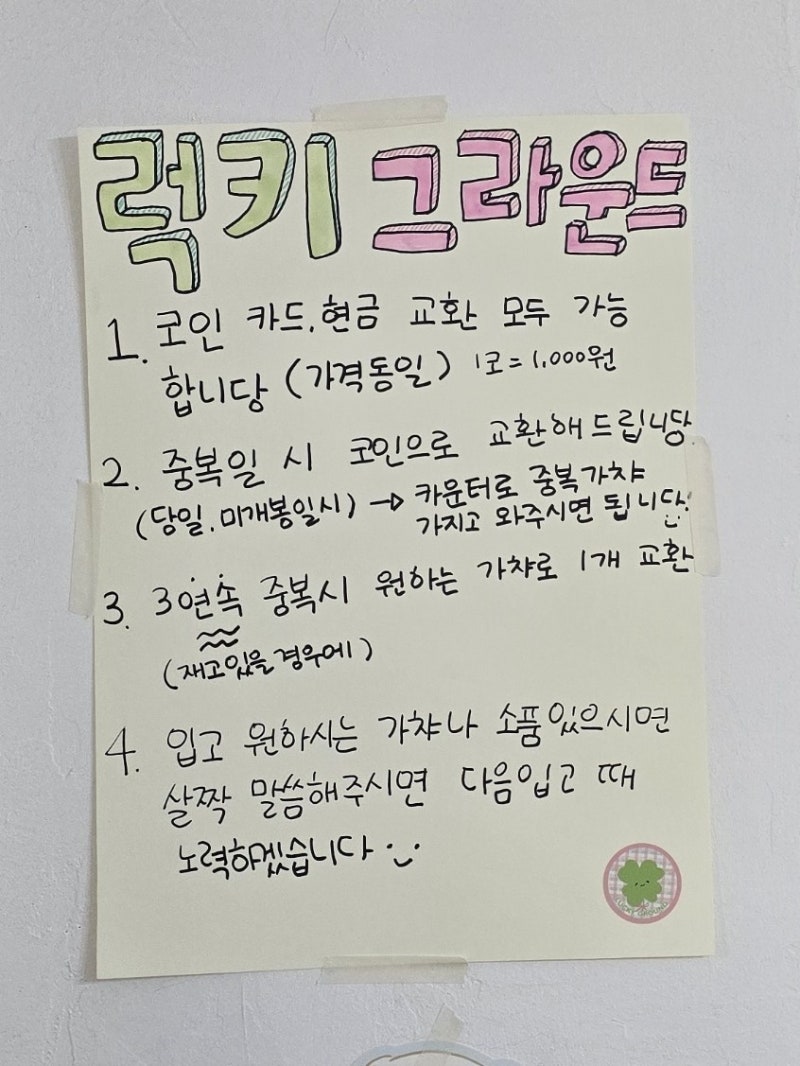 럭키 그라운드
1. 코인 카드.현금 교환 모두 가능
합니당 (가격동일) 1코=1,000원
2. 중복일 시 코인으로 교환해드립니당
(당일, 미개봉일시) → 카운터로 중복가챠
가지고 와주시면 됩니다!
3. 3연속 중복시 원하는 가챠로 1개 교환
(재고있을경우에)
4. 입고 원하시는 가챠나 소품있으시면
살짝 말씀해주시면 다음입고 때
노력하겠습니다
LUCKY GROUND